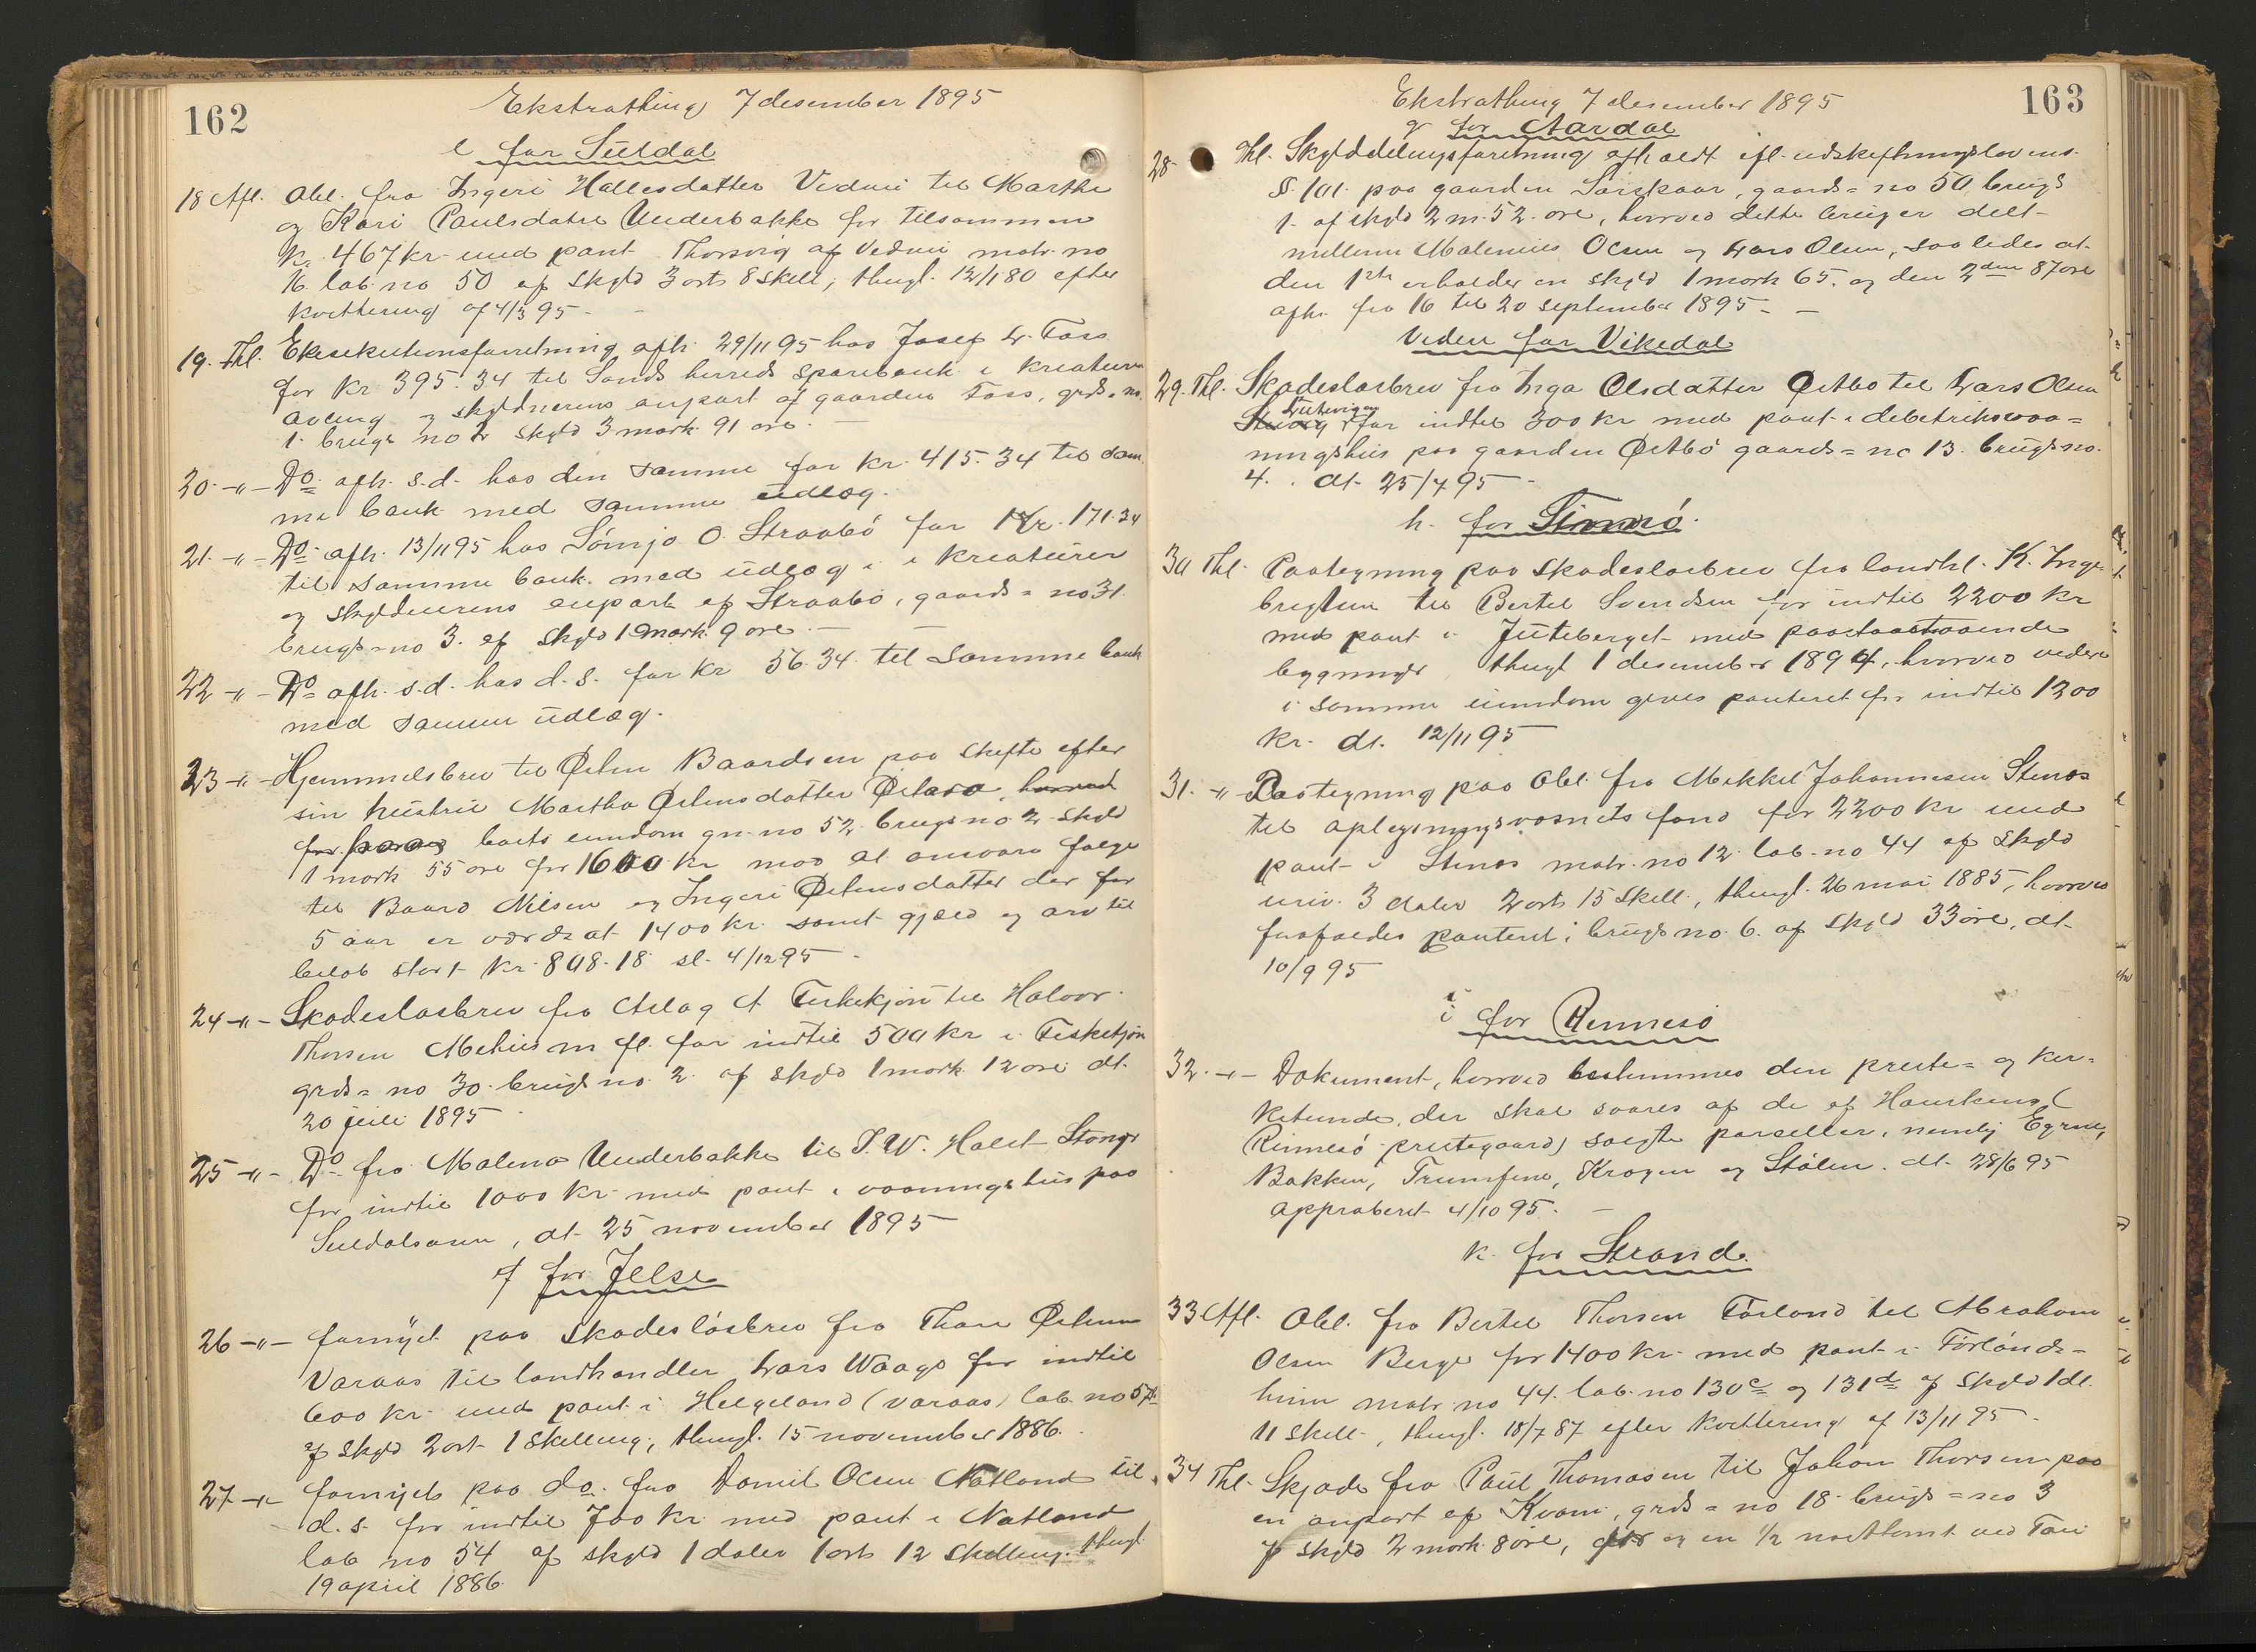 162
Ekstrathing 7 desember 1895
e for Suldal
18 Afl. Obl. fra Ingeri Hallesdatter Vedvii til Marthe
og Kari Paulsdatre Underbakke for tilsammen
kr. 467 kr med pant Thorsvig af Vedvii matr. no
16 lab no 50 af skyld 3 orts 8 skell, thingl. 12/1 80 efter
kvittering af 4/3 95 -
19. Thl. Eksekutionsforretning afh. 29/11 95 hos Josef L. Foss
for kr. 395.34 til Sands herreds sparebank i kreaturer
avling og skyldnerens anpart af gaarden Foss, grds. no.
1. brugs no 2 skyld 3 mark 91 øre. -
20. -"- Do. afh. s.d. hos den samme for kr. 415.34 til sam
me bank med samme udlæg.
21. -"- Do. afh. 13/11 95 hos Sømjo O. Straabø for Kr. 171.34
til samme bank med udlæg i kreaturer
og skyldnerens anpart af Straabø, gaards=no 31.
brugs=no 3. af skyld 1 mark 9 øre. -
22 -"- Do afh. s.d. hos d.s. for kr 56.34 til samme bank
med samme udlæg.
23 -"- Hjemmelsbrev til Østen Baardsen paa skifte efter
sin hustru Martha Østensdatter
boets eiendom gr. no 52 brugs no 2 skyld
1 mark 55 øre for 1600 kr mod at ansvare folge
til Baard Nilsen og Ingeri Østensdatter der for
5 aar er værdsat 1400 kr. samt gjæld og arv til
beløb stort kr. 898.18 sl. 4/12 95 -
24 -"- Skadesløsbrev fra Aslag A Fisketjøn til Halvor
Thorsen Mehus m fl. for indtil 500 kr i Fisketjøn
grds=no 30 brugs no. 2. af skyld 1 mark 12 øre dt.
20 juli 1895
25 -"- Do fra Malena Underbakke til P.W. Halst Stange
for indtil 1000 kr med pant i vaaningshus paa
Suldalsosen, dt. 25 november 1895
f for Jelse
26 -"- fornyet paa skadesløsbrev fra Thore Østensen
Varaas til landhandler Lars Waage for indtil
600 kr med pant i Helgeland (Varaas) lab. no 57
af skyld 2 ort 1 skilling, thingl. 15 november 1886.
27 -"- fornyet paa do. fra Daniel Olsen Natland til
d.s. for indtil 700 kr med pant i Natland
lab no 54 af skyld 1 daler 1 ort 12 skilling. thingl
19 april 1886.
Ekstrathing 7 desember 1895
163
g for Aardal
28. Thl. Skylddelingsforretning afholdt ifl. udskiftningslovens
§. 101. paa gaarden Sørskaar, gaards=no 50 brugs
1. af skyld 2 m. 52. øre, hvorved dette brug er delt
mellem Malenius Olsen og Lars Olsen, saaledes at
den 1ste erholder en skyld 1 mark 65. og den 2den 87 øre
afh. fra 16 til 20 september 1895 -
Videre for Vikedal
29. Thl. Skadesløsbrev fra Inga Olsdatter Østbø til Lars Olsen
for indtil 300 kr med pant i debetriks vaa=
ningshus paa gaarden Østbø gaards=no 13. brugs no.
4. . dt. 25/7 95 -
h. for
30 Thl. Paategning paa skadesløsbrev fra landhl. K. Inge
brigtsen til Bertel Svendsen for indtil 2200 kr
med pant i Juteberget med paastaaende
bygninger thingl 1 desember 1894, hvorved videre
i samme eiendom gives panteret for indtil 1200
kr. dt. 12/11 95
31. -"- Paategning paa obl. fra Mikkel Johannesen Stenøs
til oplysningsvæsnets fond for 2200 kr med
pant i Stenøs matr. no 12 lab. no 44 af skyld
urev. 3 daler 2 orts 15 skell., thingl. 26 mai 1885, hvorved
frafaldes panteret i brugs no. 6. af skyld 33 øre, dt.
10/9 95
i for Rennesø
32. -"- Dokument, hvorved bestemmes den preste= og kir=
ketiende, der skal svares af de af Hausken (
Rennesø prestegaard) solgte parseller, nemlig Egrene,
Bakken, Trumfene, Krogen og Stølen. dt. 28/6 95
approberet 4/10 95. -
k. for Strand.
33 Afl. Obl. fra Bertel Thorsen Førland til Abraham
Olsen Berge for 1400 kr med pant i Førlands=
heien matr. no 44. lab. no 130c og 131d af skyld 1 dl.
11 skell., thingl. 18/7 87 efter kvittering af 13/11 95 -
34 Thl. Skjøde fra Paul Thomasen til Johan Thorsen paa
en anpart af Kvam, grds=no 18 brugs=no 3
af skyld 2 mark 8 øre, og en 1/2 nosttomt ved Tau